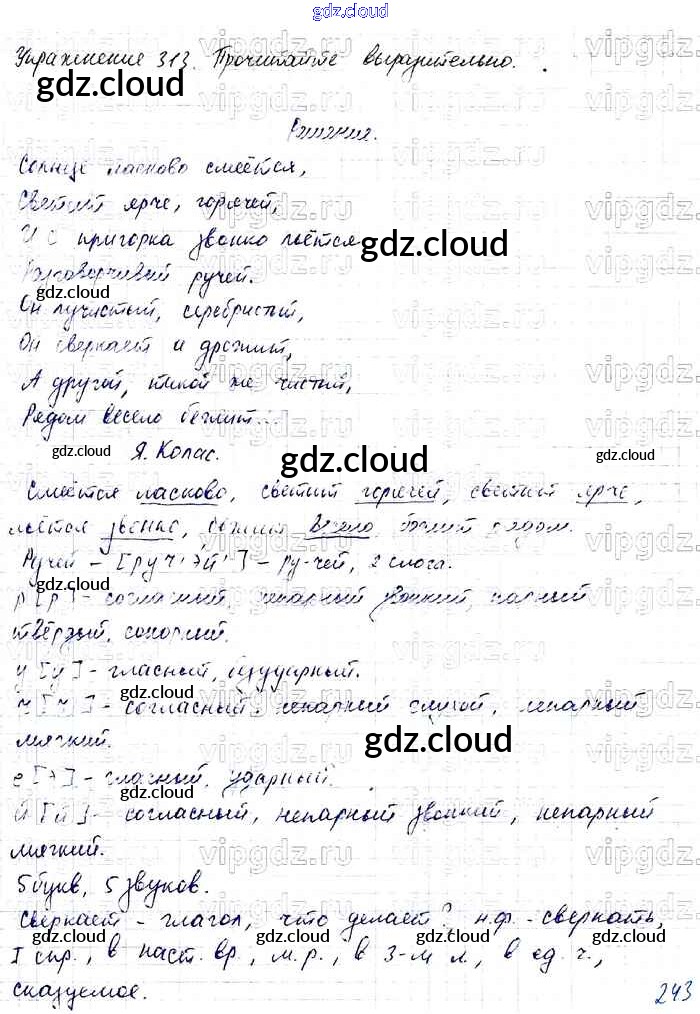 gdz.cloud
Упражнение 313. Прочитайте выразительно.
gdz.cloud
Решение.
Солнце ласково смеётся,
Светит ярче, горячей,
И с пригорка звонко льётся
gdz.cloud
Разговорчивый ручей.
gdz.cloud
Он лучистый, серебристый,
Он сверкает и дрожит,
А другой, такой же чистый,
Рядом весело бежит...
Я. Колас.
gdz.cloud
gdz.cloud
gdz.cloud
Смеётся ласково, светит горячей, светит ярче,
льётся звонко, бежит весело, бежит рядом.
Ручей – [руч'эй'] – ру-чей, 2 слога.
gdz.cloud
р [р] - согласный, непарный звонкий, парный
твёрдый, сонорный.
у [у] - гласный, безударный.
gdz.cloud
ч [ч] - согласный, непарный глухой, непарный
gdz.cloud
мягкий.
gdz.cloud
е [э] - гласный, ударный.
gdz.cloud
й [й] - согласный, непарный звонкий, непарный
мягкий.
5 букв, 5 звуков.
Сверкает - глагол, что делает? н.ф. - сверкать,
gdz.cloud
gdz.cloud
I спр., в наст. вр., м.р., в 3-м л., в ед. ч.,
сказуемое.
243
vipgdz.ru